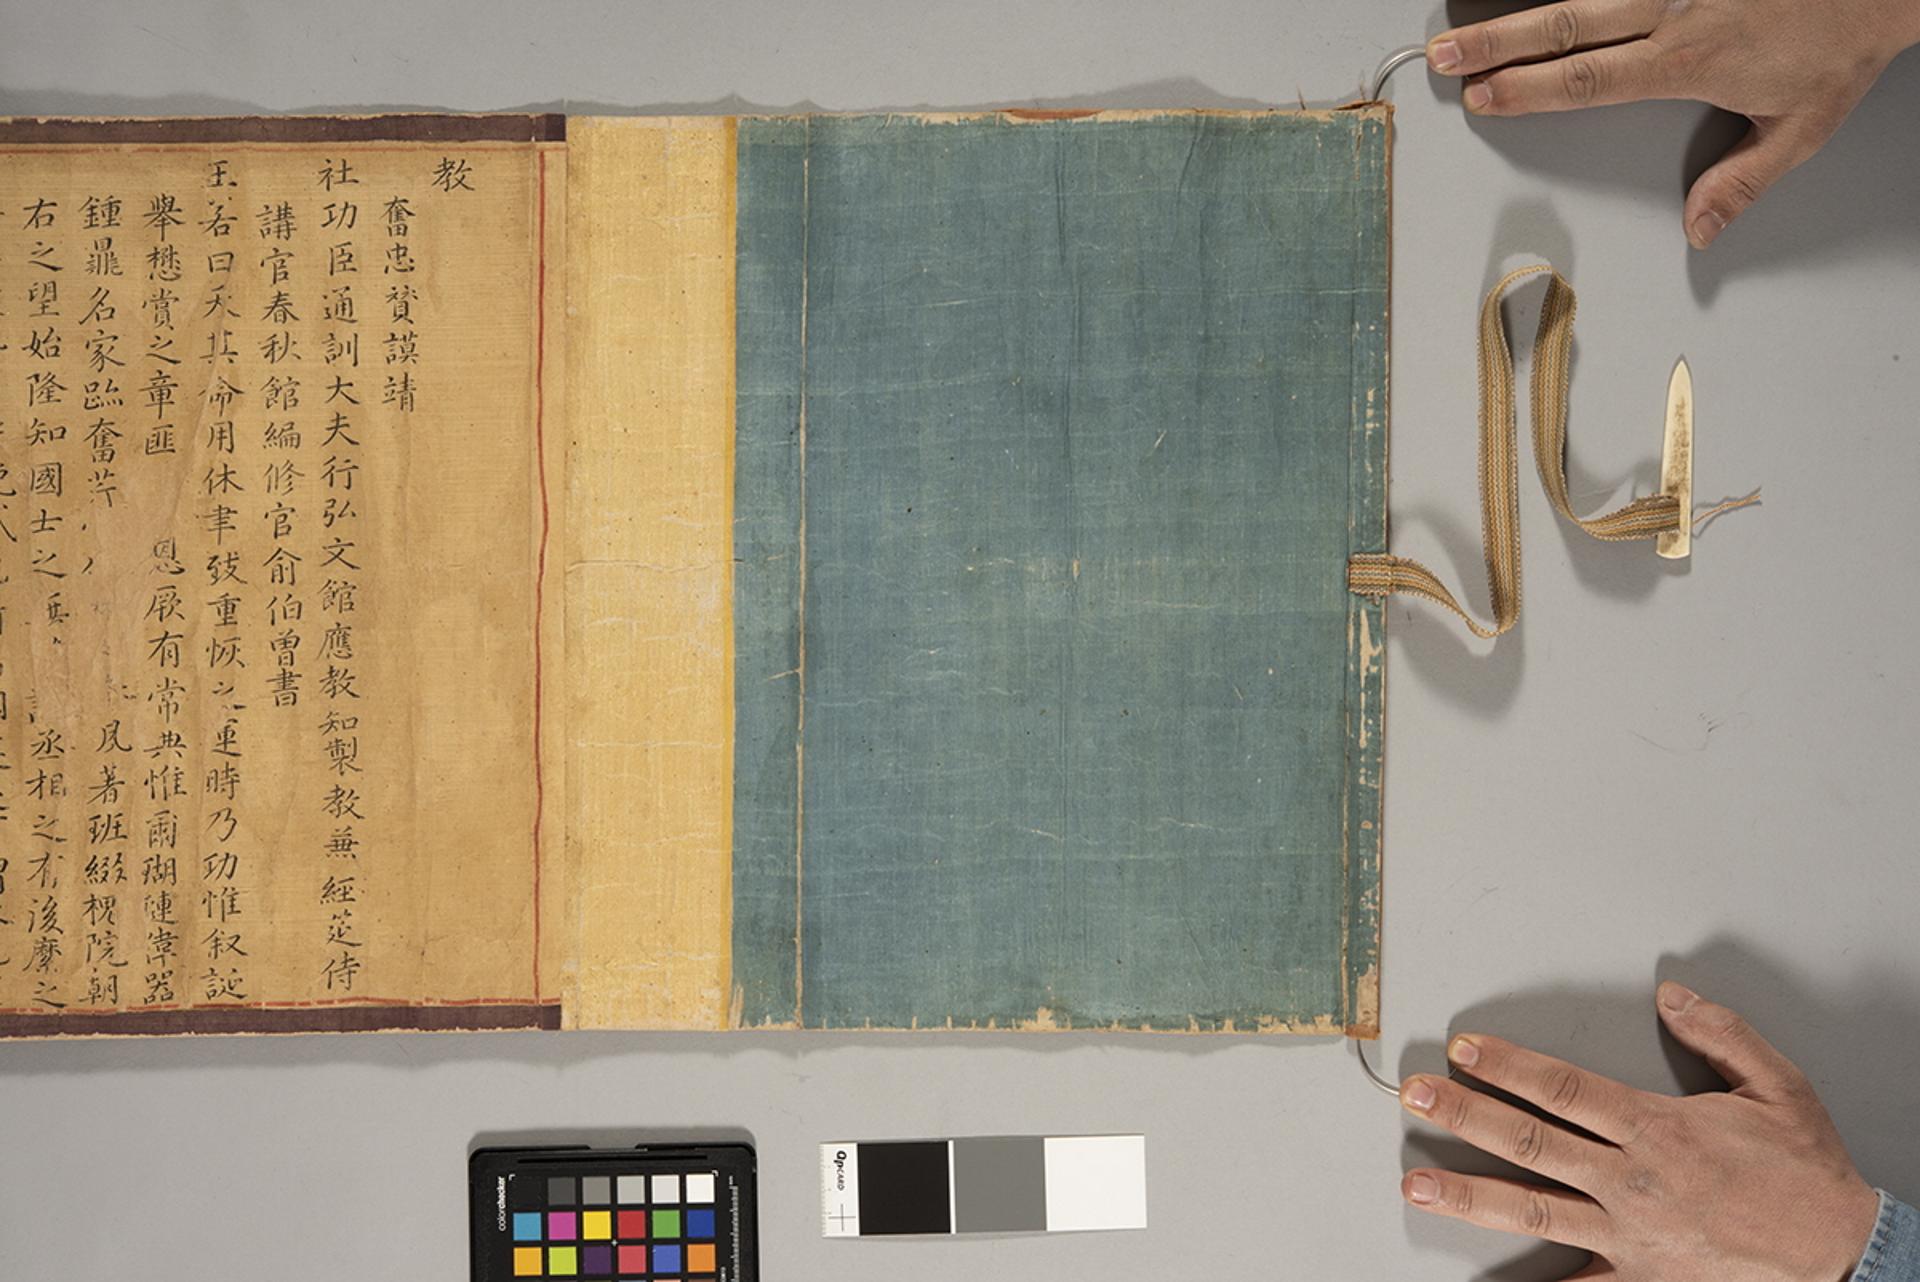 教
奮忠贊謨靖
社功臣通訓大夫行弘文館應教知製教兼 經筵侍
講官春秋館編修官俞伯曾書
王若曰天其命用休聿致重恢之運時乃功惟叙誕
舉懋賞之章匪 恩厥有常典惟爾瑚璉寉器
鍾鼎名家 奮 夙著班綴槐院朝
右之望始隆知國士之 丞相之有後縻之
colorchecker
QPCARD